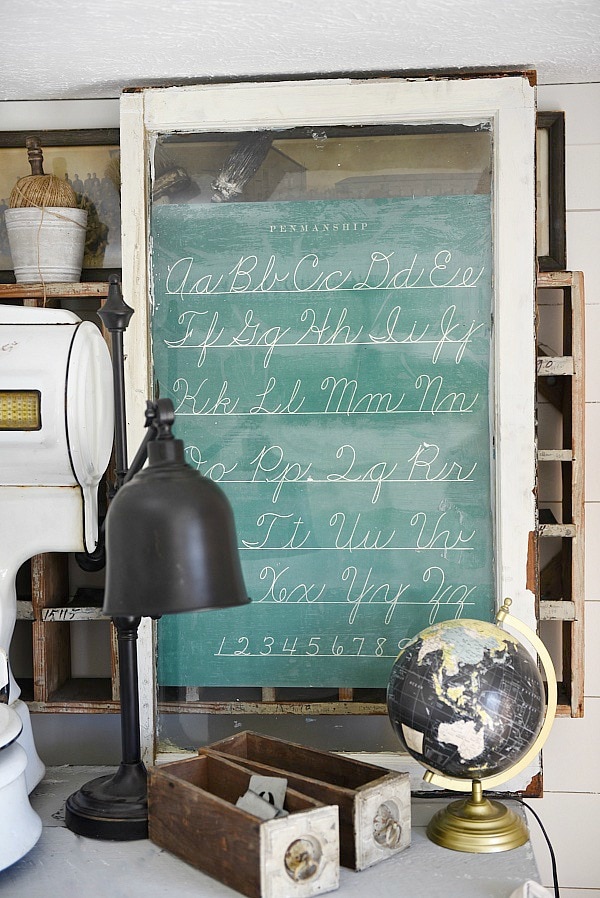 PENMANSHIP
Aa Bb Cc Dd Ee
Ff Gg Hh Ii Jj
Kk Ll Mm Nn
Oo Pp Qq Rr
Tt Uu Vv
Xx Yy Zz
12345678